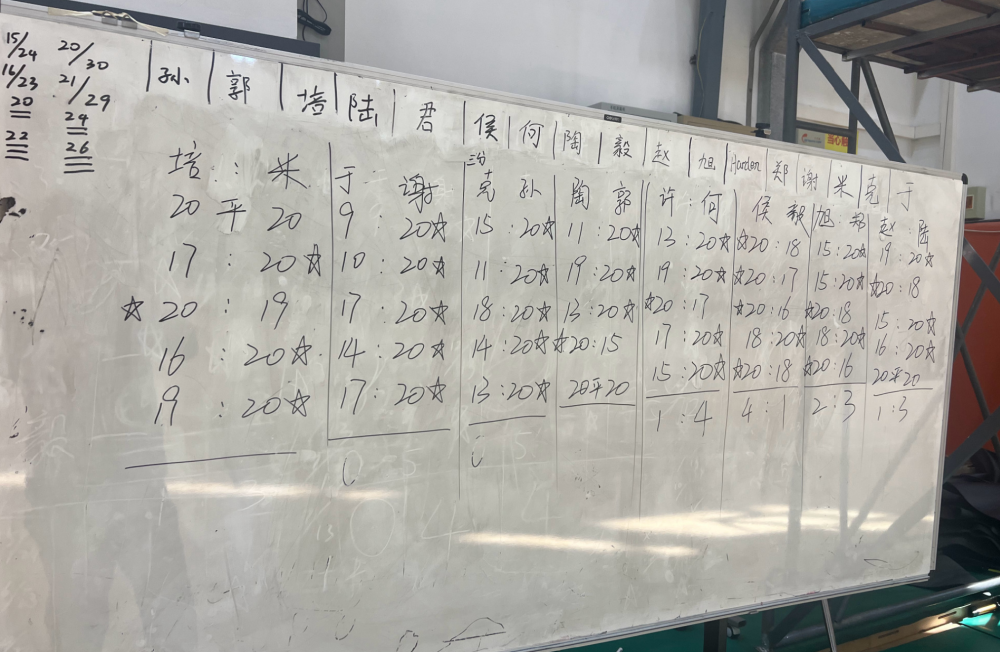 15/24 20/30
16/23 21/29
20 24
22 26
孙 | 郭 | 培 | 陆 | 君 | 侯 | 何 | 陶 | 毅 | 赵 | 旭 | Harden | 郑 | 谢 | 米 | 克 | 于
培 : 米
20 平 20
17 : 20☆
☆20 : 19
16 : 20☆
19 : 20☆
于 : 谢
9 : 20☆
10 : 20☆
17 : 20☆
14 : 20☆
17 : 20☆
克 孙
15 : 20☆
11 : 20☆
18 : 20☆
14 : 20☆
13 : 20☆
陶 郭
11 : 20☆
19 : 20☆
13 : 20☆
☆20 : 15
20平20
许 : 何
13 : 20☆
19 : 20☆
☆20 : 17
17 : 20☆
15 : 20☆
1 : 4
侯 毅
☆20 : 18
☆20 : 17
☆20 : 16
18 : 20☆
☆20 : 18
4 : 1
旭 : 郑
15 : 20☆
15 : 20☆
☆20 : 18
18 : 20☆
☆20 : 16
2 : 3
赵 : 陆
19 : 20☆
☆20 : 18
15 : 20☆
16 : 20☆
20平20
1 : 3